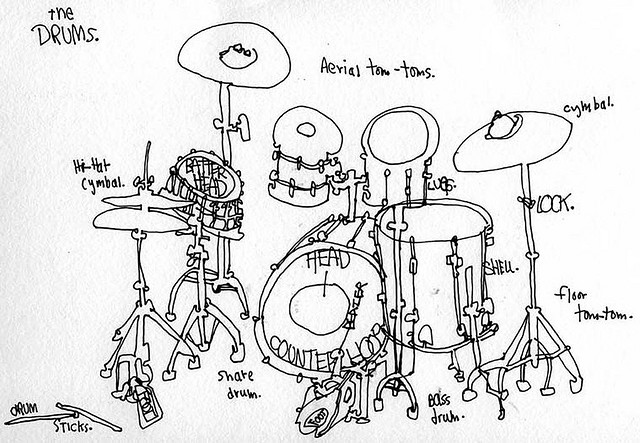 the
DRUMS.
Aerial tom-toms.
cymbal.
Hi-Hat
cymbal.
BATTER
HEAD
LUGS.
LOCK.
HEAD
SHELL.
floor
tom-tom.
COUNTER HOOP
snare
drum.
Bass
drum.
DRUM
STICKS.